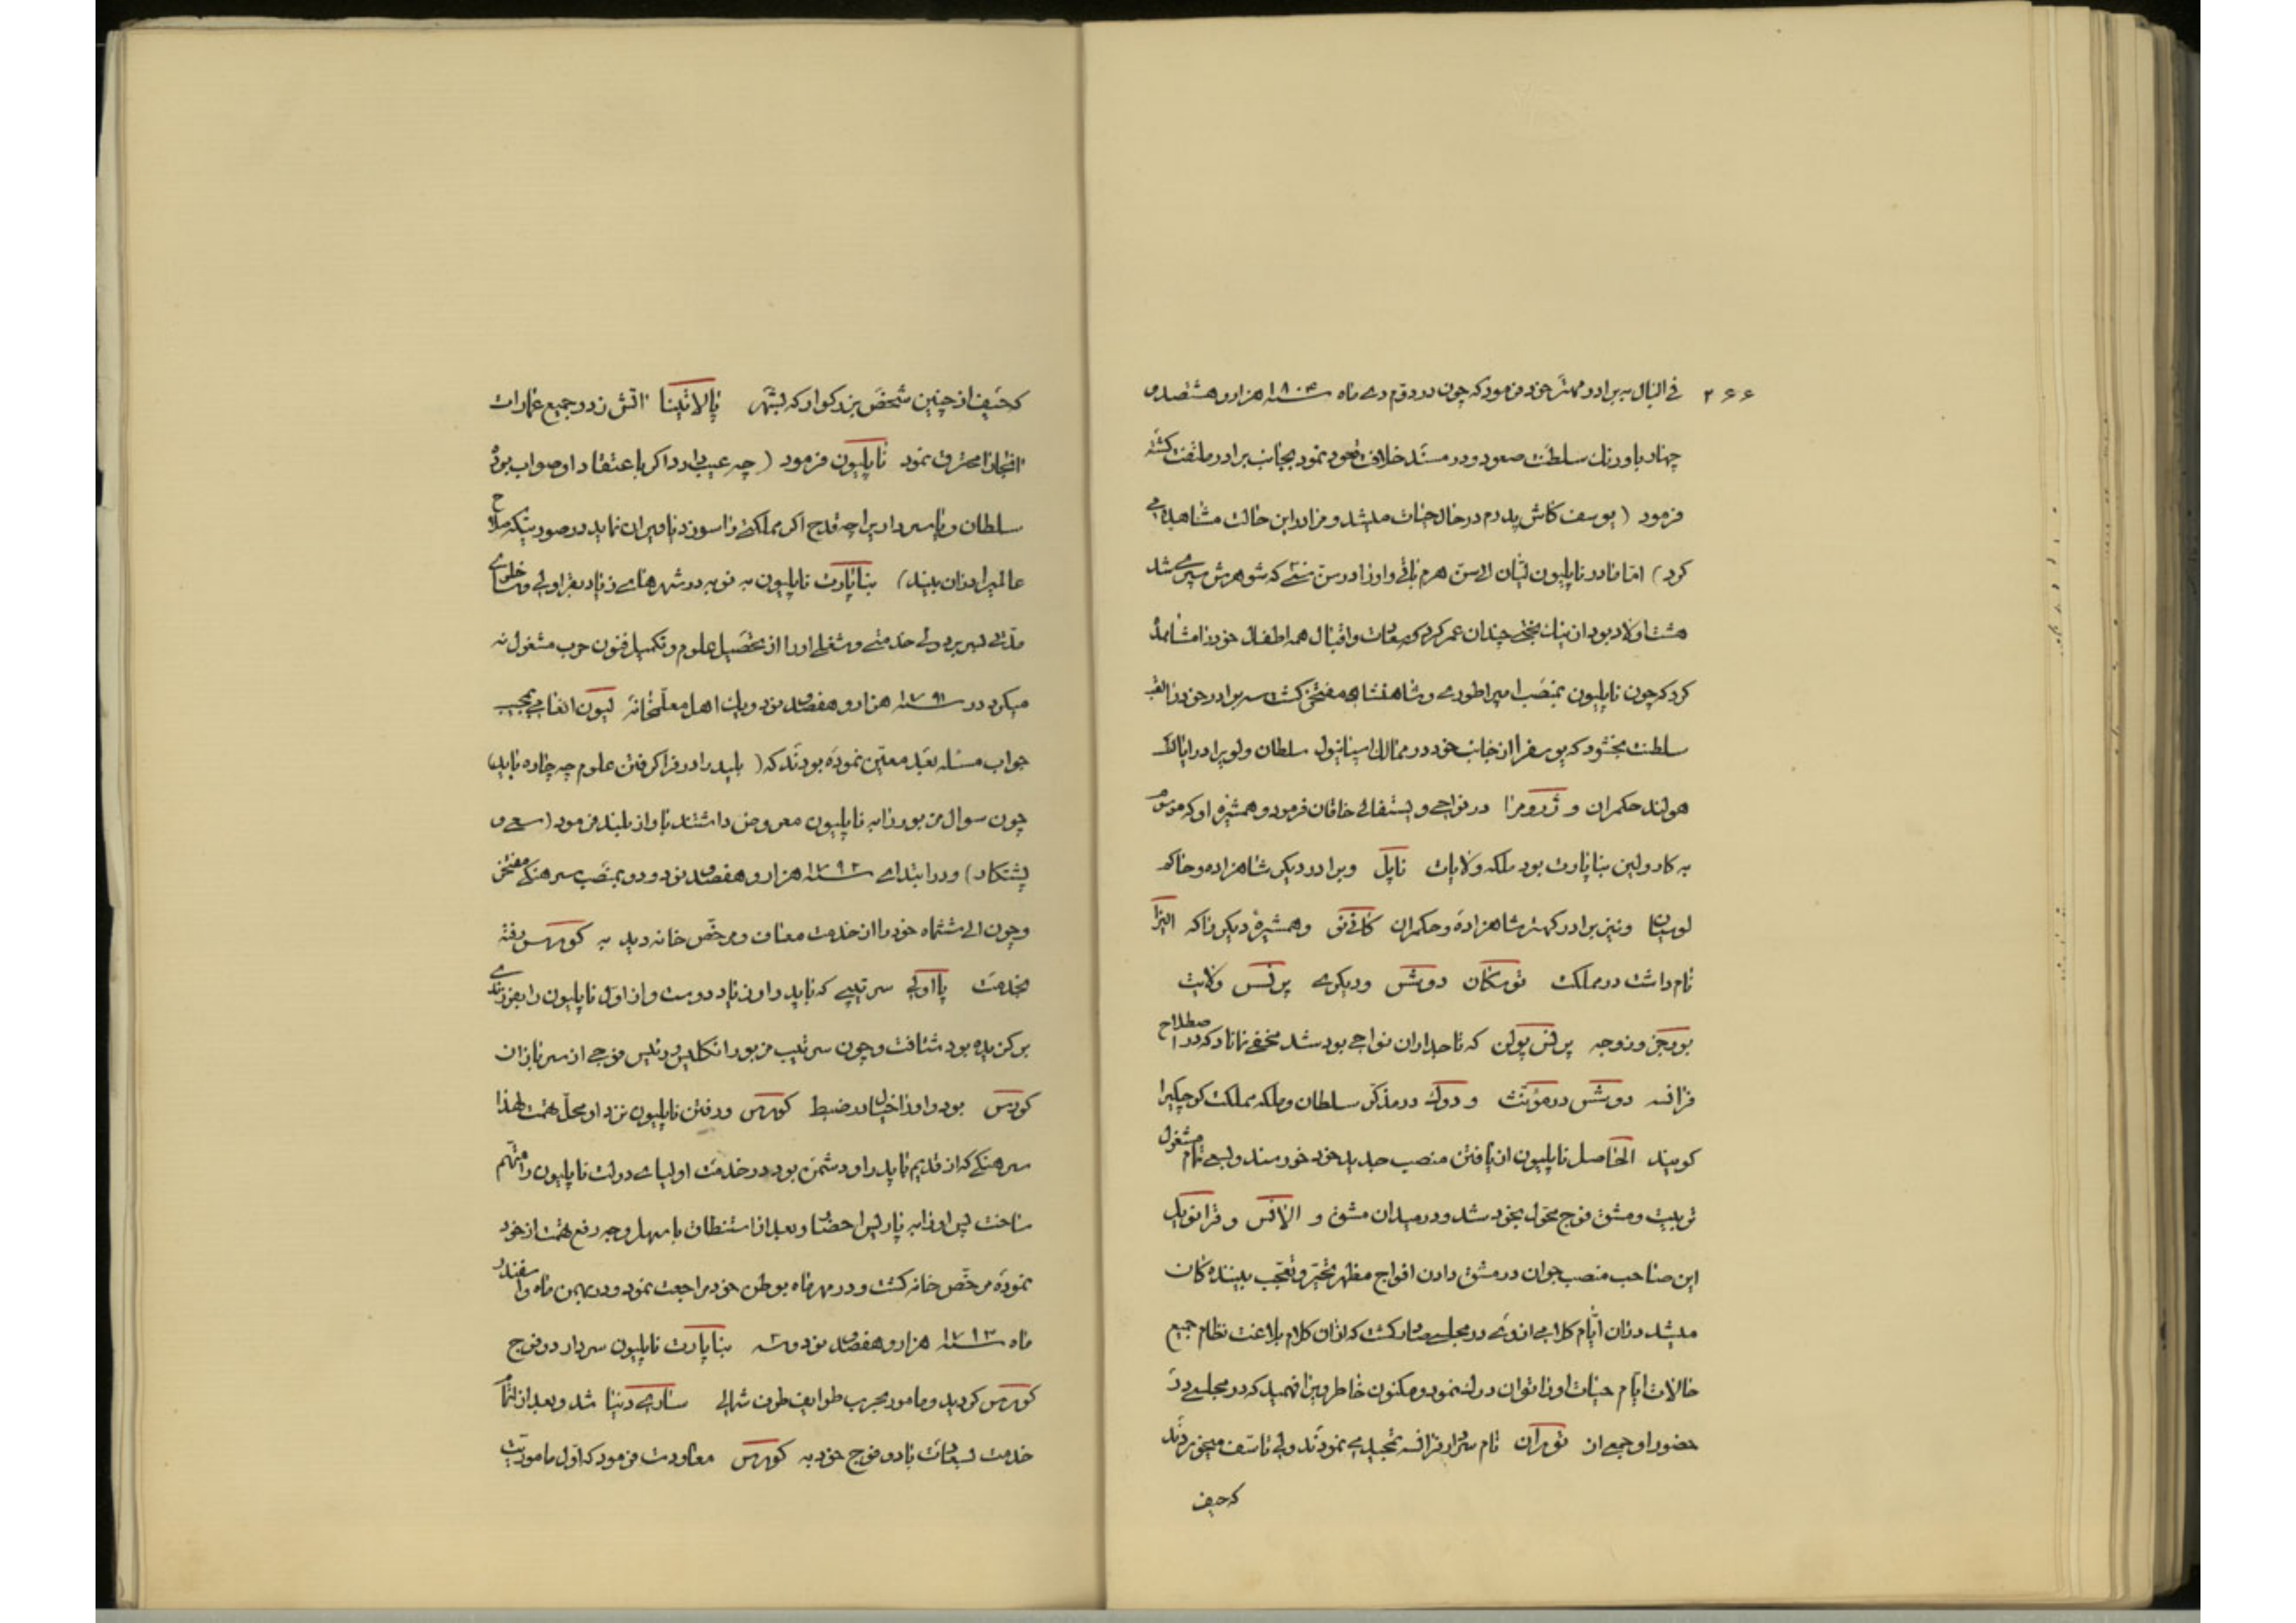 ۲۶۶ فی البال به برادر مهتر خود فرمود که چون در دوّم دی ماه سنه ۱۸۰۴ هزار و هشتصد و
چهار باورنك سلطنت صعود و در مسند خلافت قعود نمود بجانب برادر ملتفت گشته
فرمود ( یوسف کاش پدرم در حال حیات میشد و مرا در این حالت مشاهده می
کرد ) امّا مادر ناپلیون لتیان الی سن هرم باقی و او را در سن سنی که شوهرش سپری شد
هشت اولاد بود از نیك بختی چندان عمر کرد که سعادت و اقبال همه اطفال خود را مشاهده
کرد که چون ناپلیون بمنصب امپراطوری و شاهنشاهی مفتخر گشت سه برادر خود را لقب
سلطنت بخشود که یوسف را از جانب خود در ممالك اسپانیول سلطان و لوی را در ایالات
هولند حکمران و ژرومرا در نواحی وستفالی خاقان فرمود و همشیره او که موسوم
به کارولین بناپارت بود ملکه ولایات ناپل و برادر دیگر شاهزاده و حاکم
لوسیان و نیز برادر کهتر شاهزاده و حکمران کانی‌نی و همشیرهٔ دیگر را که الیزا
نام داشت در مملکت توسکان دوشس و دیگری پرنسس ولایت
بورجز و زوجه پرنس پولن که تاجداران نواحی بود شد مخفی نماناد که در اصطلاح
فرانسه دوشس در مؤنث و دوك در مذکر سلطان و ملکه مملکت کوچکیرا
گویند الحاصل ناپلیون از یافتن منصب جدید خود خورسند و بسعی تمام مشغول
تربیت و مشق فوج محوّل بخود شد و در میدان مشق و الانس و فرانویل
این صاحب منصب جوان در مشق دادن افواج مظهر تحیّر و تعجّب بیننده کان
میشد در آن ایّام کلامی از وی در مجلسی صادر گشت که از آن کلام بلاغت نظام جمیع
حالات ایّام حیات او را توان درك نمود و مکنون خاطر ویرا فهمید که در مجلسی در
حضور او جمعی از توران نام سردار فرانسه تمجید می نمودند ولی تاسّف میخوردند
که حیف
که حیف از چنین شخص بزرکوار که بشهر پالاتینا اتش زد و جمیع عمارات
انجا را محترق نمود ناپلیون فرمود ( چه عیب دارد اکر باعتقاد او صواب بود
سلطان و یا سردار یرا چه قدح اکر مملکتی را سوزد یا ویران نماید در صورتیکه صلاح
عالمیرا در آن بیند ) بناپارت ناپلیون به نوبه در شهرهای زیاد بقراولی و ساخلوی
مدّتی بسر برد ولی خدمتی و شغلی او را از تحصیل علوم و تکمیل فنون حرب مشغول نه
میکرد در سنه ۱۷۹۱ هزار و هفصد نود و یك اهل معلّمخانه لیون انعامی بمجیب
جواب مسئله بعَید معیّن نموده بودند که ( باید را در فرا کرفتن علوم چه چاره باید )
چون سوال مزبور را به ناپلیون معروض داشتند باواز بلند فرمود ( سعی و
پشتکار ) و در ابتدای سنه ۱۷۹۲ هزار و هفصد نود و دو بمنصب سرهنکی مفتخر
و چون الی ششماه خود را از خدمت معاف و مرخّص خانه دید به کورس رفته
بخدمت پااولی سرتیپی که با پدر او زیاد دوست و از اول ناپلیون را بفرزندی
برکزیده بود شتافت و چون سرتیپ مزبور انکلیس و رئیس فوجی از سربازان
کورس بود و او را خیال در ضبط کورس و رفتن ناپلیون نزد او محلّ تهمت لهذا
سرهنکی که از قدیم با پدر او دشمن بود در خدمت اولیای دولت ناپلیون را متّهم
ساخت پس او را به پاریس احضار و بعد از استنطاق باسهل وجه رفع تهمت از خود
نموده مرخّص خانه کشت و در مهر ماه بوطن خود مراجعت نمود و در بهمن ماه و اسفند
ماه سنه ۱۷۹۳ هزار و هفصد نود و سه بناپارت ناپلیون سردار دو فوج
کورس کردید و مامور بحرب طوایف طرف شمالی ساردینیا شد و بعد از اتمام
خدمت بسعادت با دو فوج خود به کورس معاودت فرمود که اوّل ماموریّت